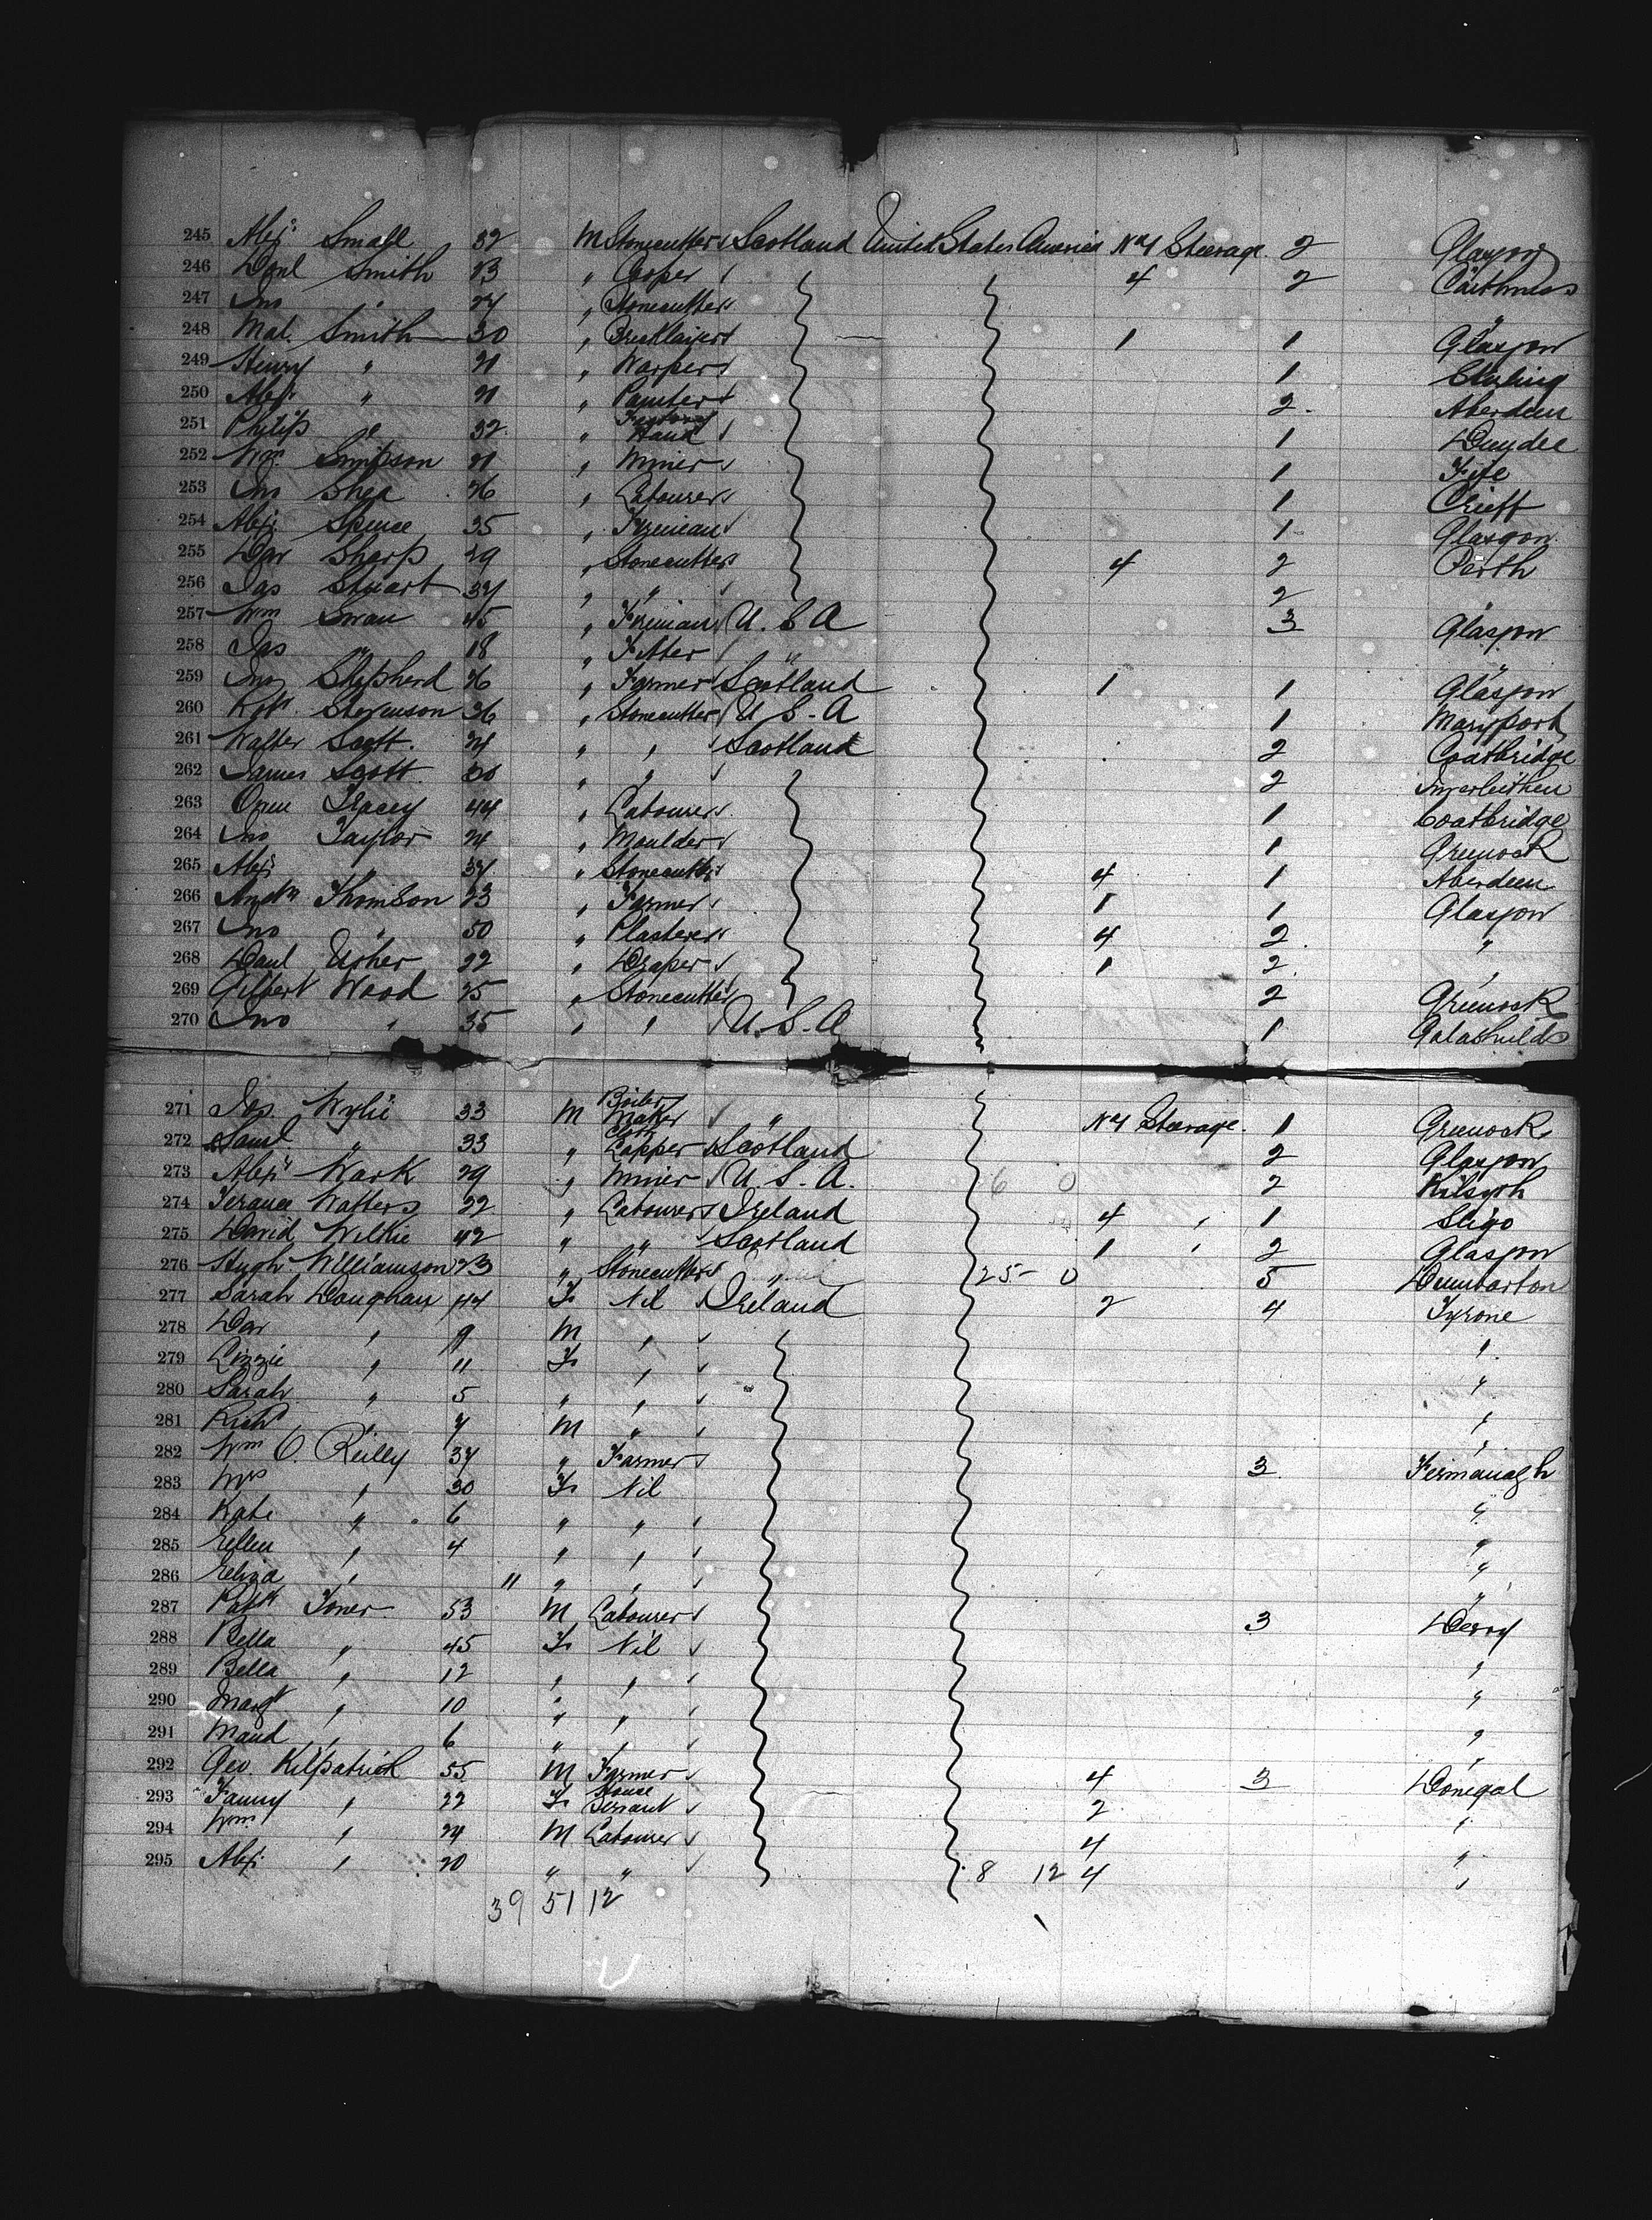 245 Alexr Small 32 M Stonecutter Scotland United States America No 1 Steerage 2 Glasgow
246 Danl Smith 23 " Cooper 4 2 Caithness
247 Jno " 27 " Stonecutter "
248 Mal. Smith 30 " Bricklayer 1 1 Glasgow
249 Henry " 21 " Warper 1 Stirling
250 Alexr " 21 " Painter 2 Aberdeen
251 Philip " 32 " Factory Hand 1 Dundee
252 Wm Simpson 21 " Miner 1 Fife
253 Jno Shea 26 " Labourer 1 Crieff
254 Alexr Spence 35 " Fireman 1 Glasgow
255 Dav Sharp 29 " Stonecutter 4 2 Perth
256 Jas Stuart 37 " " 2 "
257 Wm Swan 45 " Fireman U.S.A 3 Glasgow
258 Jas " 18 " Fitter " "
259 Jno Shepherd 26 " Farmer Scotland 1 1 Glasgow
260 Robt Stevenson 36 " Stonecutter U.S.A 1 Maryport
261 Walter Scott 24 " " Scotland 2 Coatbridge
262 James Scott 20 " " 2 Innerleithen
263 Owen Tracey 44 " Labourer 1 Coatbridge
264 Jno Taylor 24 " Moulder 1 Greenock
265 Alexr " 37 " Stonecutter 4 1 Aberdeen
266 Andw Thomson 23 " Farmer 1 1 Glasgow
267 Jno " 50 " Plasterer 4 2 "
268 Danl Usher 22 " Draper 1 2 "
269 Gilbert Wood 25 " Stonecutter 2 Greenock
270 Jno " 35 " " U.S.A 1 Galashields
271 Jas Wylie 33 M Boiler Maker " No 1 Steerage 1 Greenock
272 Saml " 33 " Lapper Scotland 2 Glasgow
273 Alexr Wark 29 " Miner U.S.A. 6 0 2 Kilsyth
274 Watters 22 " Labourer Ireland 4 " 1 Sligo
275 David Wilkie 42 " " Scotland 1 " 2 Glasgow
276 Hugh Williamson 23 " Stonecutter " 25 - 0 5 Dumbarton
277 Sarah Doughan 44 F Nil Ireland 2 4 Tyrone
278 Dav " 9 M " "
279 Lizzie " 11 F " "
280 Sarah " 5 " " "
281 Richd " 7 M " "
282 Wm O. Reilly 37 " Farmer 3 Fermanagh
283 Mrs " 30 F Nil "
284 Kate " 6 " " "
285 Ellen " 4 " " "
286 Eliza " 11 " " "
287 Patk Toner 53 M Labourer 3 Derry
288 Bella " 45 F Nil "
289 Bella " 12 " " "
290 Margt " 10 " " "
291 Maud " 6 " " "
292 Geo. Kilpatrick 55 M Farmer 4 3 Donegal
293 Fanny " 22 F House Servant 2 "
294 Wm " 24 M Labourer 4 "
295 Alexr " 20 " " 8 12 4 "
39 51 12